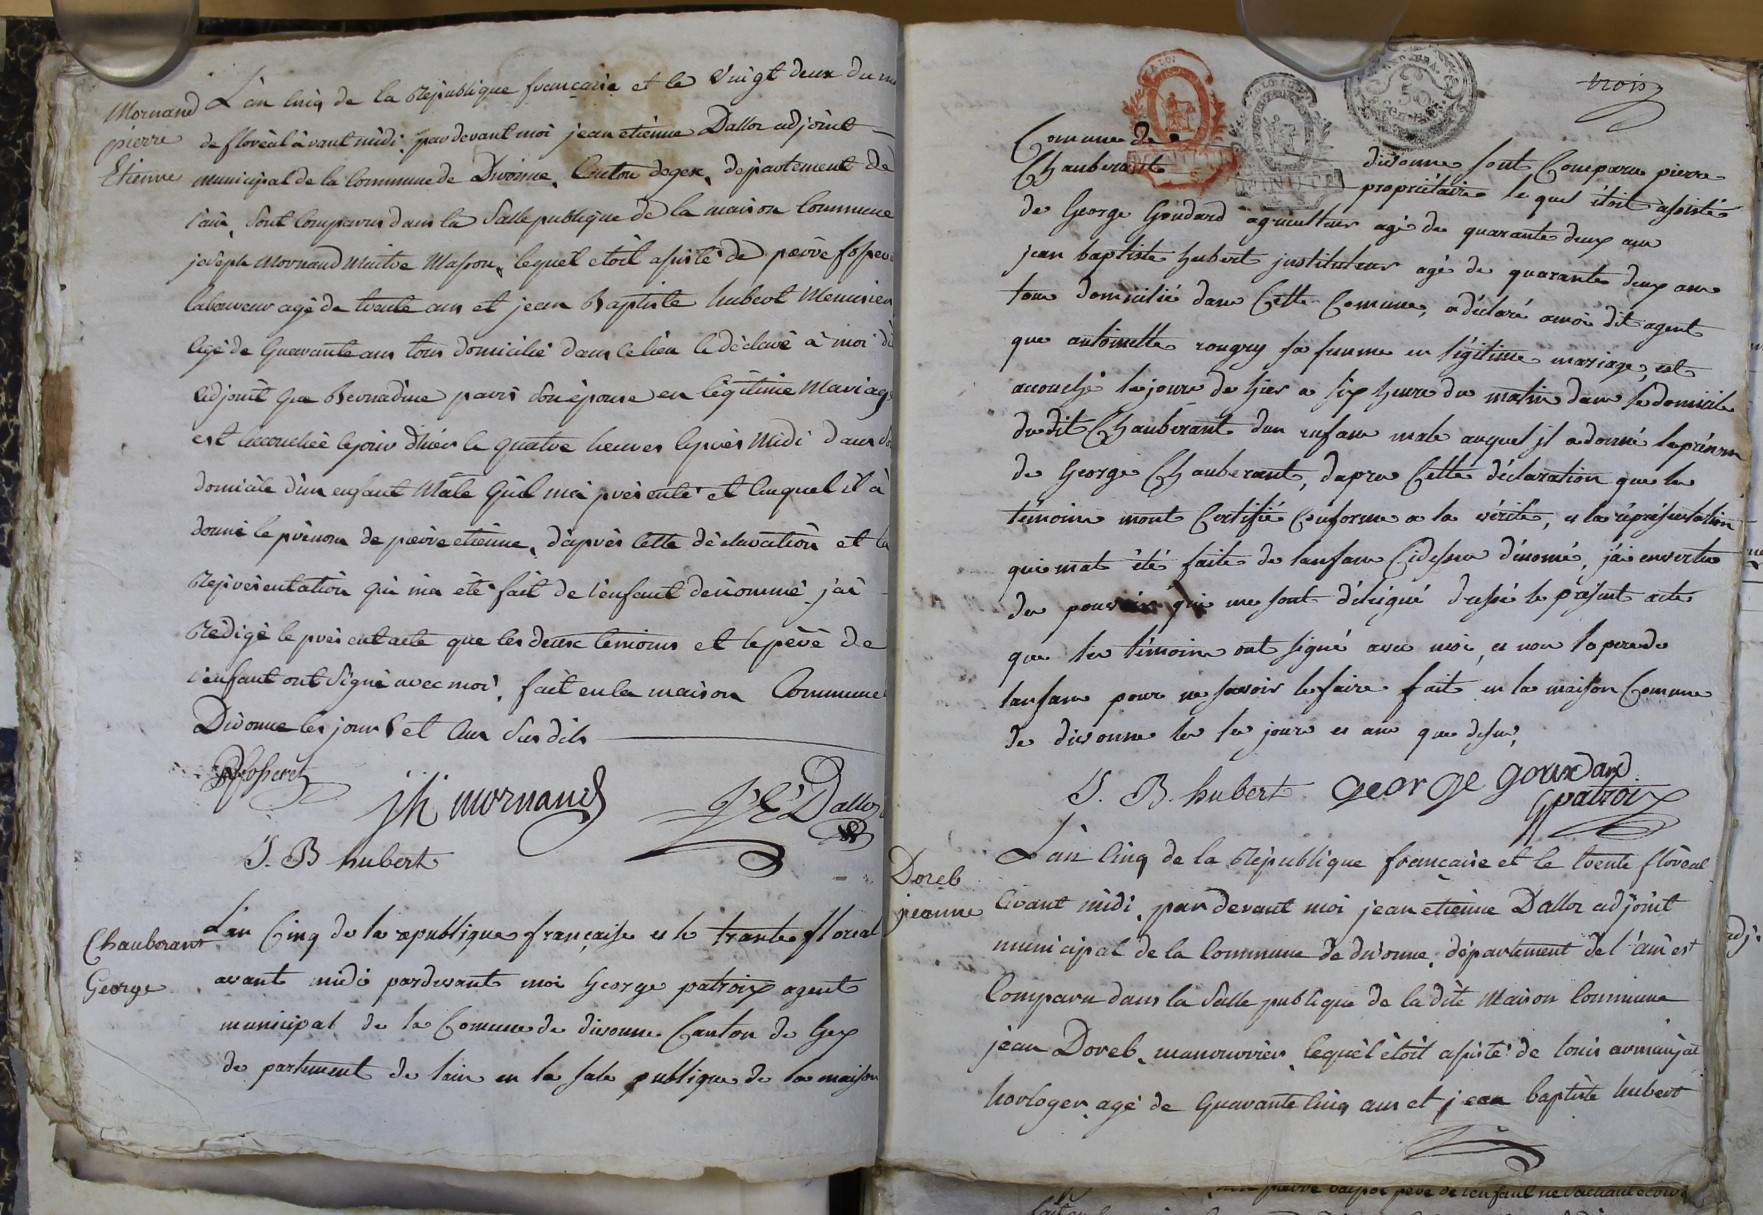 Mornand
pierre
Etienne
L'an Cinq de la République française et le Vingt deux du
de floréal avant midi pardevant moi jean etienne Dalloz adjoint
municipal de la Commune de Divonne, Canton de gex, département de
l'ain, sont Comparus dans la Salle publique de la maison Commune
joseph Mornand Maitre Masson, lequel etoit assisté de pierre fosseret
laboureur agé de trente ans et jean Baptiste hubert Menusier
agé de Quarante ans tous domicilié dans ce lieu a déclaré à moi dit
adjoint que Bernadine paris son épouse en légitime Mariage
est accouchée le jour d'hier le quatre heures après Midi dans son
domicile d'un enfant Mâle qu'il m'a présenté et auquel il à
donné le prénom de pierre etienne, d'après cette déclaration et la
Représentation qui m'a été fait de l'enfant dénommé j'ai
Rédigé le présent acte que les deux temoins et le père de
l'enfant ont signé avec moi, fait en la maison Commune
Divonne les jours et An Susdits
P fosseret
jh mornand
J E Dalloz
J. B hubert
Chauberant
George
L'an Cinq de la republique française et le trante floreal
avant midi pardevant moi George patroix agent
municipal de la Comune de divonne Canton de Gex
de partement de lain en la sale publique de la maison
trois
Comune de divonne sont Comparu pierre
Chauberant propriétaire lequel étoit assisté
de George Goudard agriculteur agé de quarante deux ans
jean baptiste hubert instituteur agé de quarante deux ans
tous domicilié dans Cette Comune, a déclaré a moi dit agent
que antoinette rougny sa femme en légitime mariage, est
accouché le jour de hier a six heure du matin dans le domicile
du dit Chauberant d'un enfant male auquel il a donné le prénom
de George Chauberant, dapre Cette déclaration que les
témoins mont Certifié Conforme a la vérité, et la représentation
qui mat été faite de lanfans Cidessu dénomé, jai en vertu
des pouvoirs qui me sont délégué dressé le présent acte
que les témoins ont signé avec moi, et non le pere de
lanfans pour ne savoir le faire fait en la maison Comune
de divonne les jours et an que dessu,
J. B. hubert George goudard
G patroix
Doreb
jeanne
L'an Cinq de la République française et le trente floréal
Avant midi, par devant moi jean etienne Dalloz adjoint
municipal de la Commune de divonne, département de l'ain est
Comparu dans la Salle publique de la dite Maison Commune
jean Doreb, manouvrier, lequel étoit assisté de louis armanjat
horloger, agé de Quarante Cinq ans et jean baptiste hubert